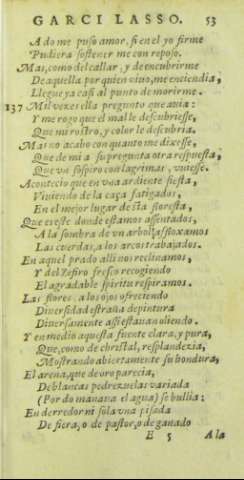 GARCI LASSO. 53
A do me puso amor, si en el yo firme
Pudiera sostener me con reposo.
Mas, como del callar, y de encubrirme
De aquella por quien viuo, me encendia,
Llegue ya casi al punto de morirme.
137 Mil vezes ella pregunto que auia:
Y me rogo que el mal le descubriesse,
Que mi rostro, y color le descubria.
Mas no acabo con quanto me dixesse,
Que de mi a su pregunta otra respuesta,
Que vn sospiro con lagrimas, vuiesse.
Acontecio que en vna ardiente siesta,
Viniendo de la caça fatigados,
En el mejor lugar desta floresta,
Que es este donde estamos assentados,
A la sombra de vn arbol afloxamos
Las cuerdas, a los arcos trabajados.
En aquel prado alli nos reclinamos,
Y del Zefiro fresco recogiendo
El agradable spiritu respiramos.
Las flores, a los ojos ofreciendo
Diuersidad estraña de pintura
Diuersamente assi estauan oliendo.
Y en medio aquesta fuente clara, y pura,
Que, como de christal, resplandezia,
Mostrando abiertamente su hondura,
El arena, que de oro parecia,
De blancas pedrezuelas variada
(Por do manaua el agua) se bullia:
En derredor ni sola vna pisada
De fiera, o de pastor, o de ganado
E 5 A la